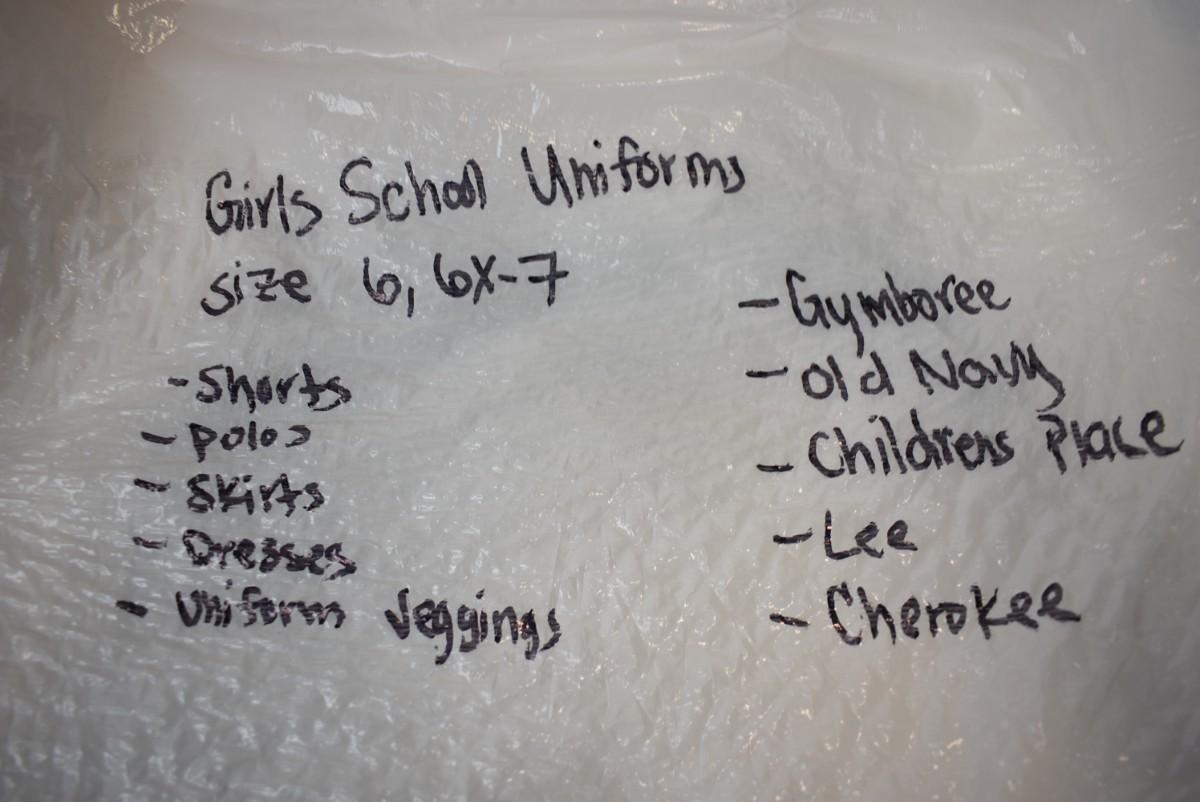 Girls School Uniforms
size 6, 6X-7
- Shorts
- Polos
- Skirts
- Dresses
- Uniform Jeggings
- Gymboree
- Old Navy
- Childrens Place
- Lee
- Cherokee